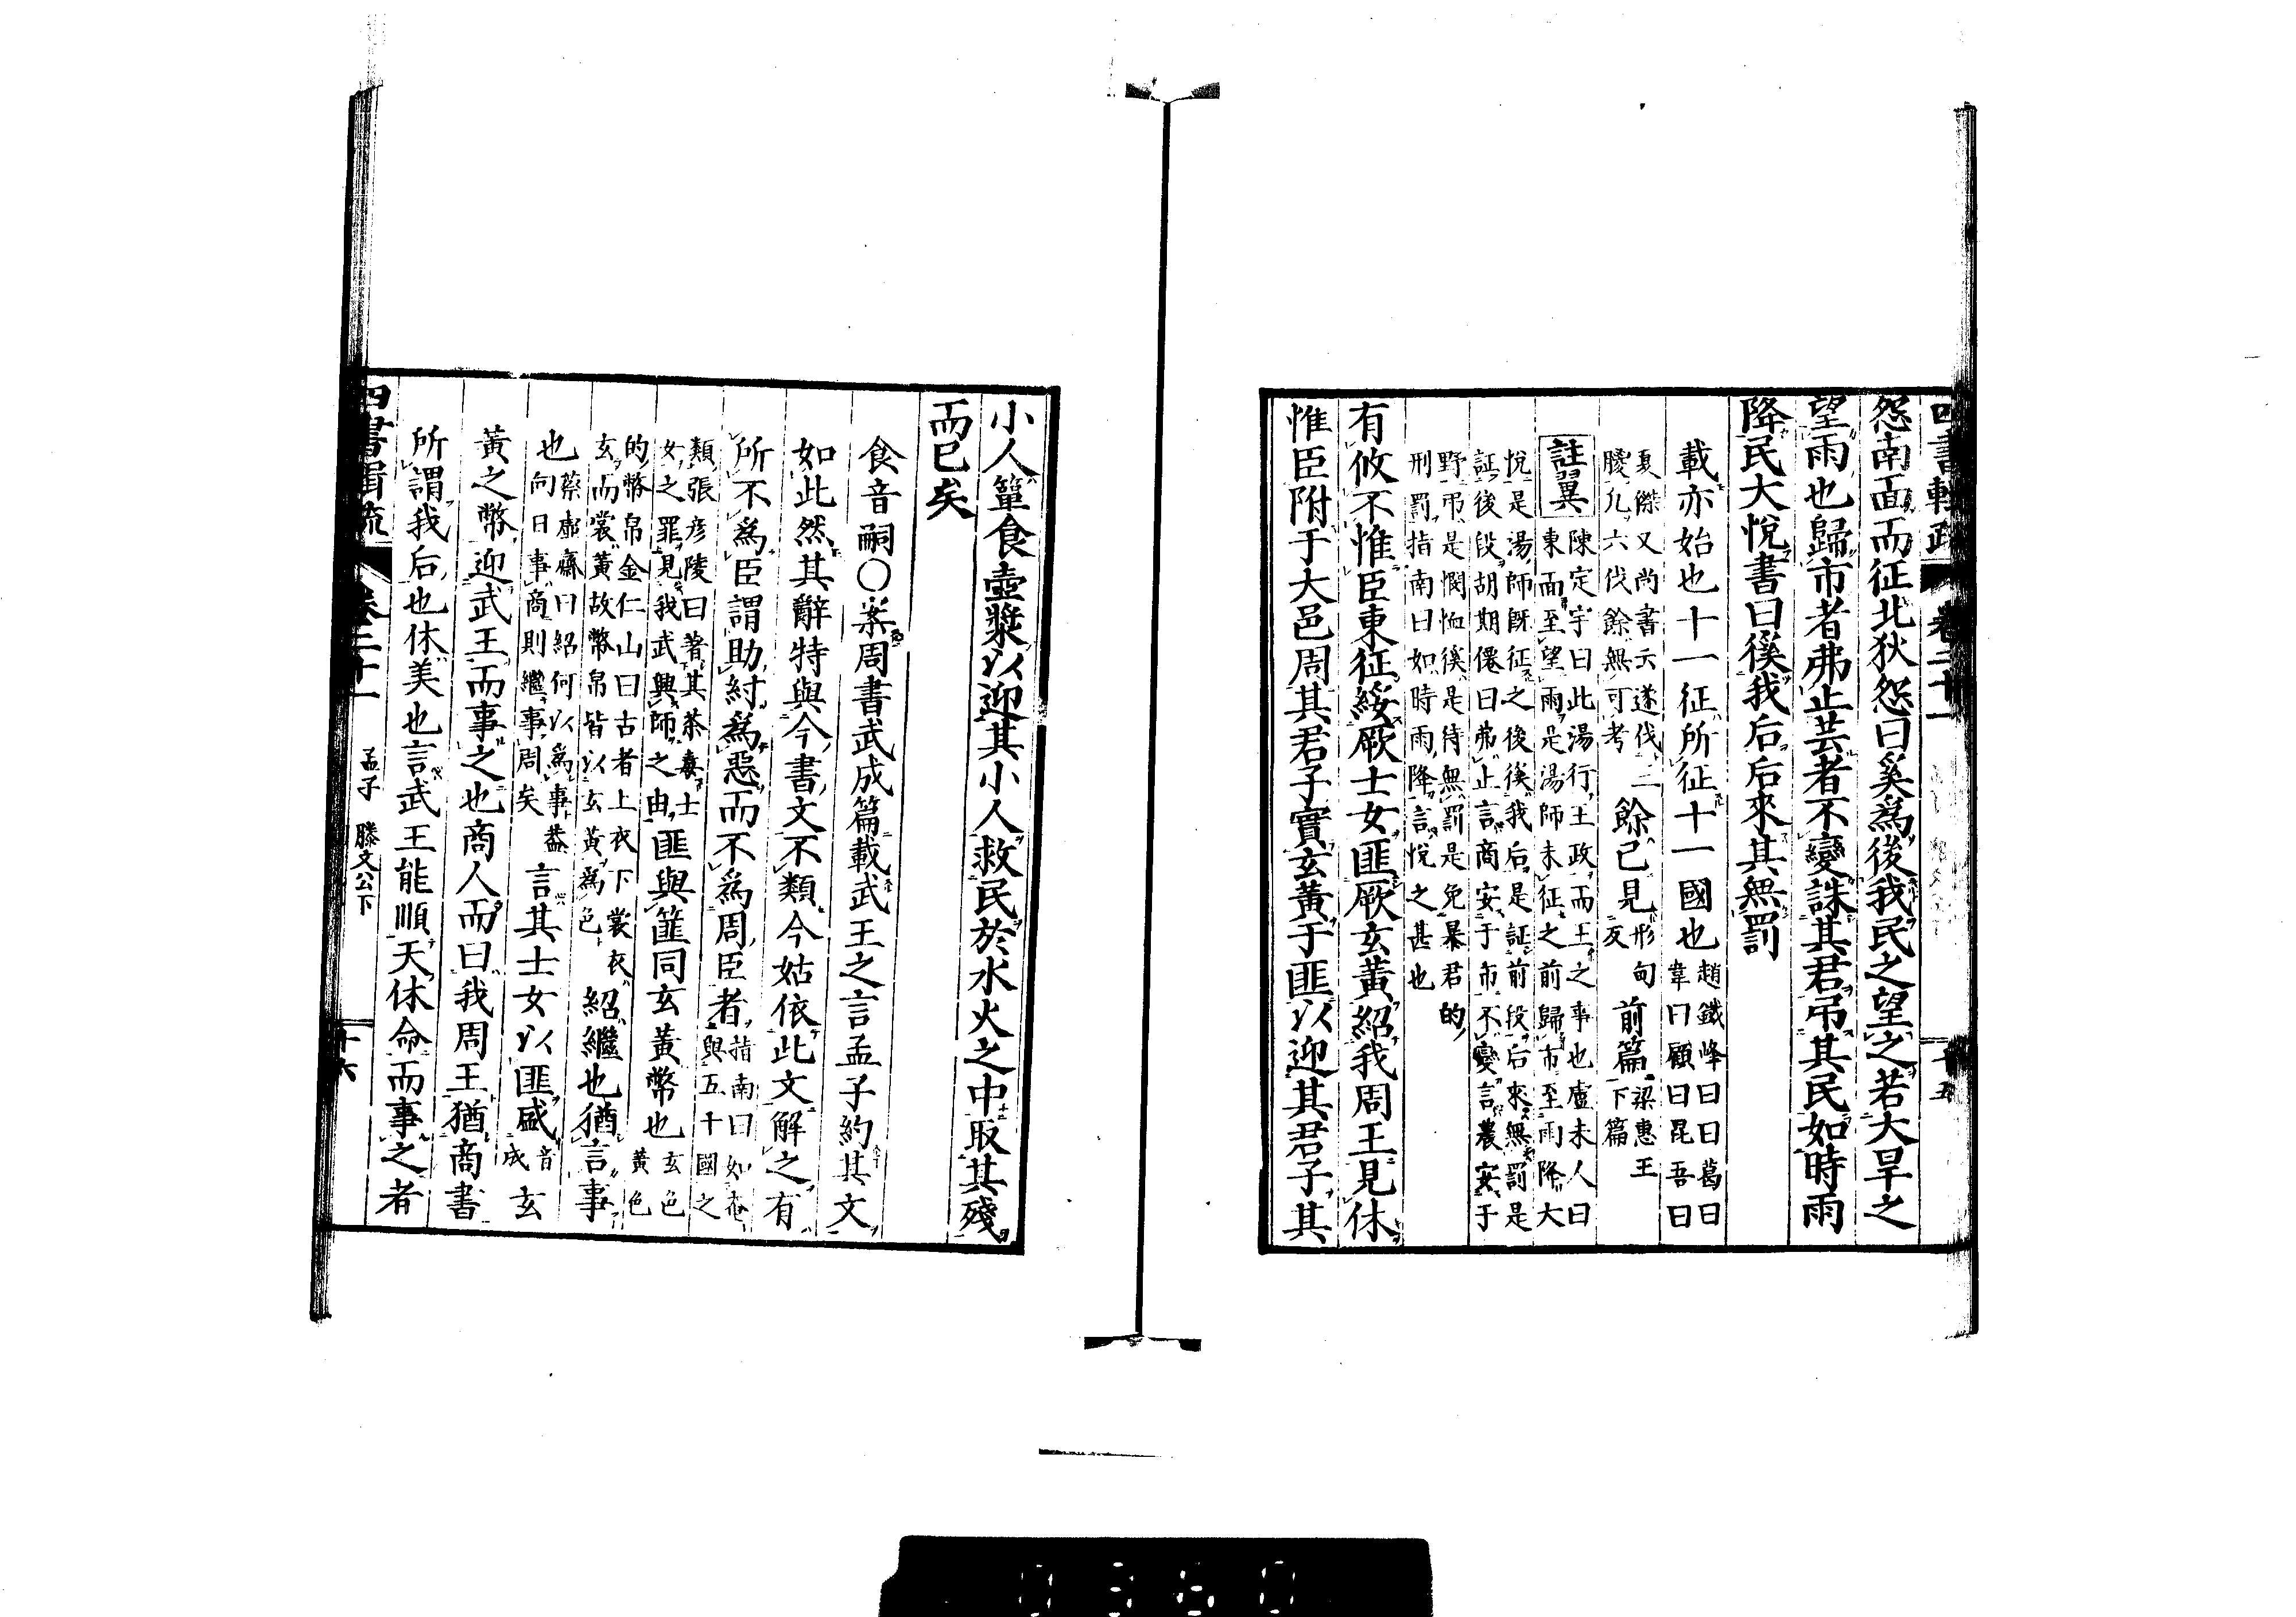 四書輯疏 卷二十一 十五
怨南面而征北狄怨曰奚爲後我民之望之若大旱之
望雨也歸市者弗止芸者不變誅其君弔其民如時雨
降民大悅書曰徯我后后來其無罰
載亦始也十一征所征十一國也趙鐵峰曰曰葛曰
韋曰顧曰昆吾曰
夏傑又尚書云遂伐三
朡凡六伐餘無可考餘已見形甸
反前篇梁惠王
下篇
註翼陳定宇曰此湯行王政而王之事也盧未人曰
東面至望雨是湯師未征之前歸市至雨降大
悅是湯師既征之後徯我后是証前段后來無罰是
証後段胡期僊曰弗止言商安于市不變言農安于
野弔是憫恤徯是待無罰是免暴君的
刑罰指南曰如時雨降言悅之甚也
有攸不惟臣東征綏厥士女匪厥玄黃紹我周王見休
惟臣附于大邑周其君子實玄黃于匪以迎其君子其
小人簞食壺漿以迎其小人救民於水火之中取其殘
而已矣
食音嗣○案周書武成篇載武王之言孟子約其文
如此然其辭特與今書文不類今姑依此文解之有
所不爲臣謂助紂爲惡而不爲周臣者指南曰如奄
與五十國之
類張彥陵曰著其荼毒士
女之罪見我武興師之由匪與篚同玄黃幣也玄色
黃色
的幣帛金仁山曰古者上衣下裳衣
玄而裳黃故幣帛皆以玄黃爲色紹繼也猶言事
也蔡虛齋曰紹何以爲事蓋
向日事商則繼事周矣言其士女以匪盛音
成玄
黃之幣迎武王而事之也商人而曰我周王猶商書
所謂我后也休美也言武王能順天休命而事之者
四書輯疏 卷二十一 孟子 滕文公下 十六
0360